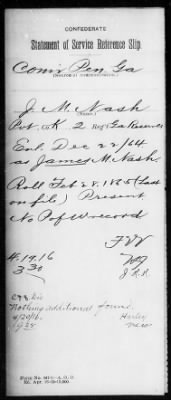 CONFEDERATE
Statement of Service Reference Slip.
Comr Pen Ga
J. M. Nash
Pvt. Co K 2 Reg't Ga Reserves
Enl. Dec 22/64
as James M. Nash.
Roll Feb 28. 1865 (Last
on file) Present
No P of W record
4.19.16
3 30
J.R.R.
Nothing additional found.
4/20/16.
1925